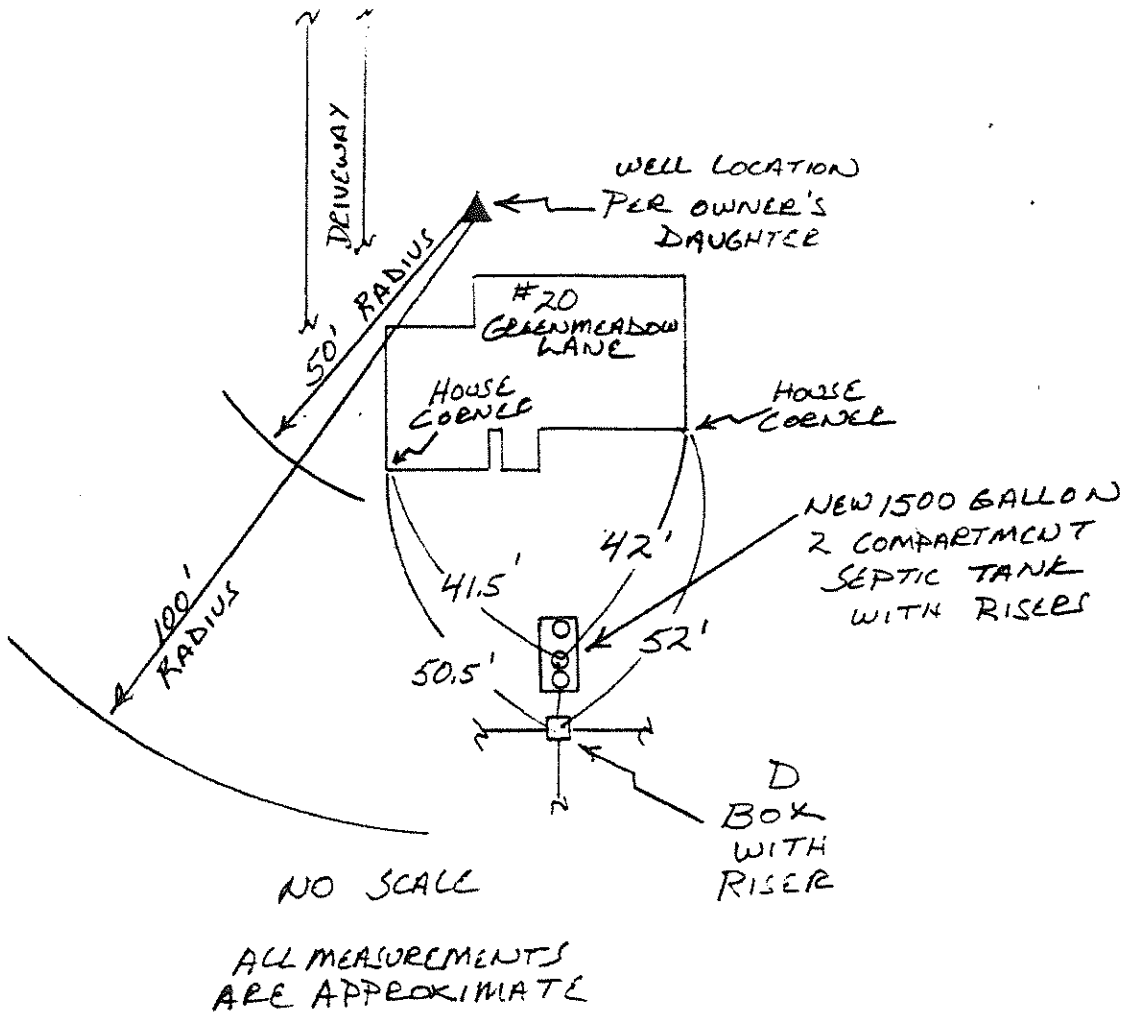 DRIVEWAY
WELL LOCATION
PER OWNER'S
DAUGHTER
50' RADIUS
#20
GREENMEADOW
LANE
HOUSE
CORNER
HOUSE
CORNER
NEW 1500 GALLON
2 COMPARTMENT
SEPTIC TANK
WITH RISERS
42'
41.5'
52'
50.5'
100'
RADIUS
D
BOX
WITH
RISER
NO SCALE
ALL MEASUREMENTS
ARE APPROXIMATE